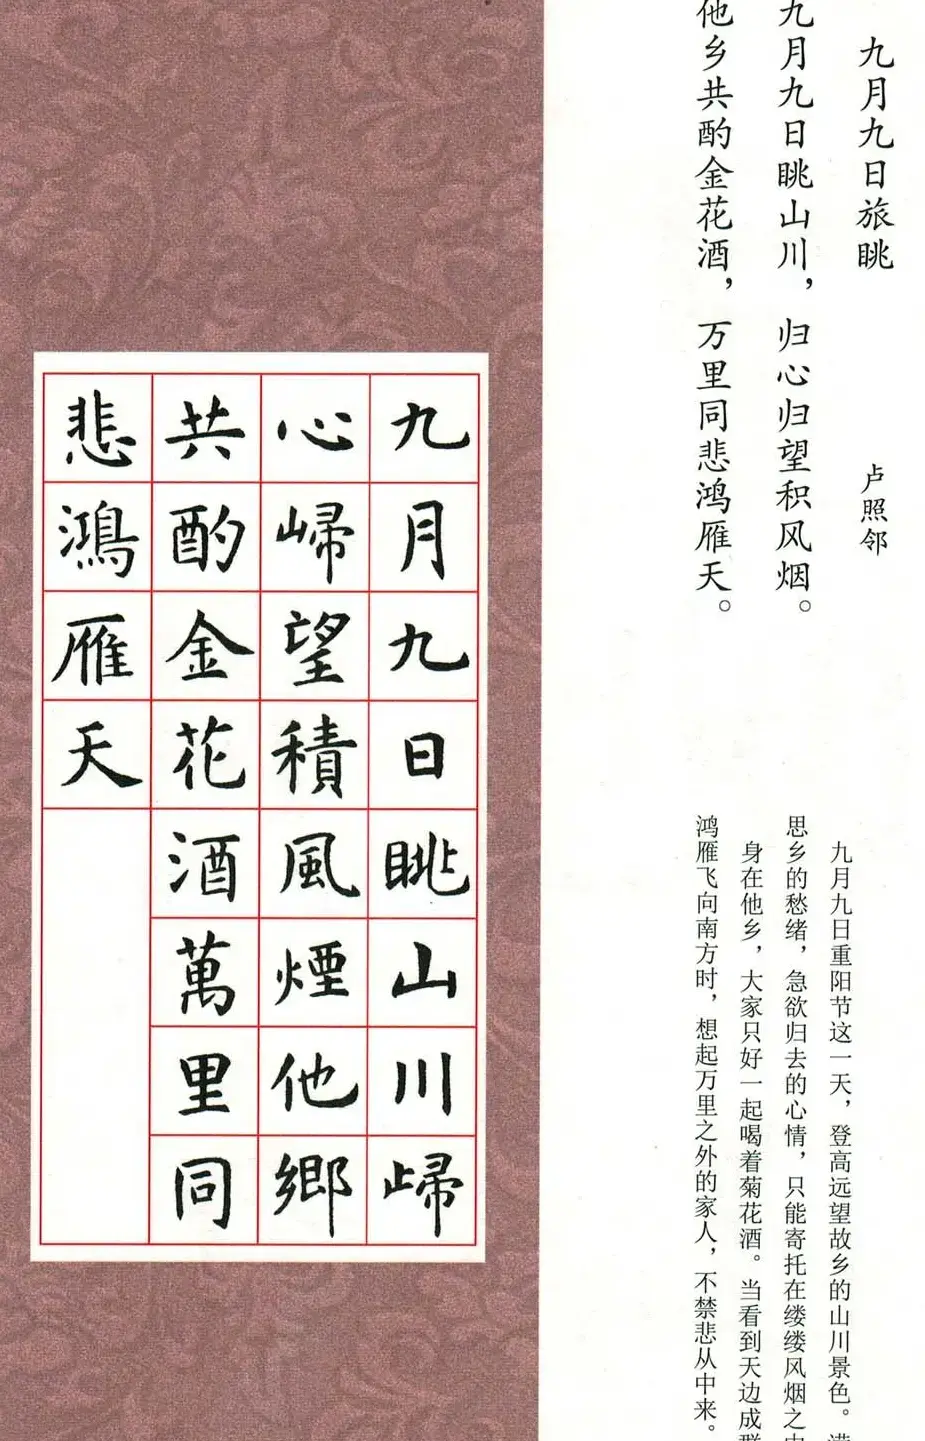 九月九日旅眺
卢照邻
九月九日眺山川，归心归望积风烟。
他乡共酌金花酒，万里同悲鸿雁天。
九月九日重阳节这一天，登高远望故乡的山川景色。
思乡的愁绪，急欲归去的心情，只能寄托在缕缕风烟之中
身在他乡，大家只好一起喝着菊花酒。当看到天边成群
鸿雁飞向南方时，想起万里之外的家人，不禁悲从中来。
九月九日眺山川㱕
心㱕望積風煙他鄉
共酌金花酒萬里同
悲鴻雁天